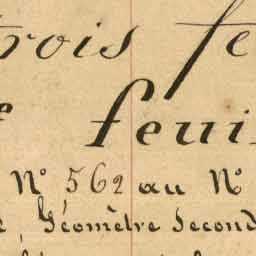 trois fe
feui
N° 562 au N°
Géomètre Second